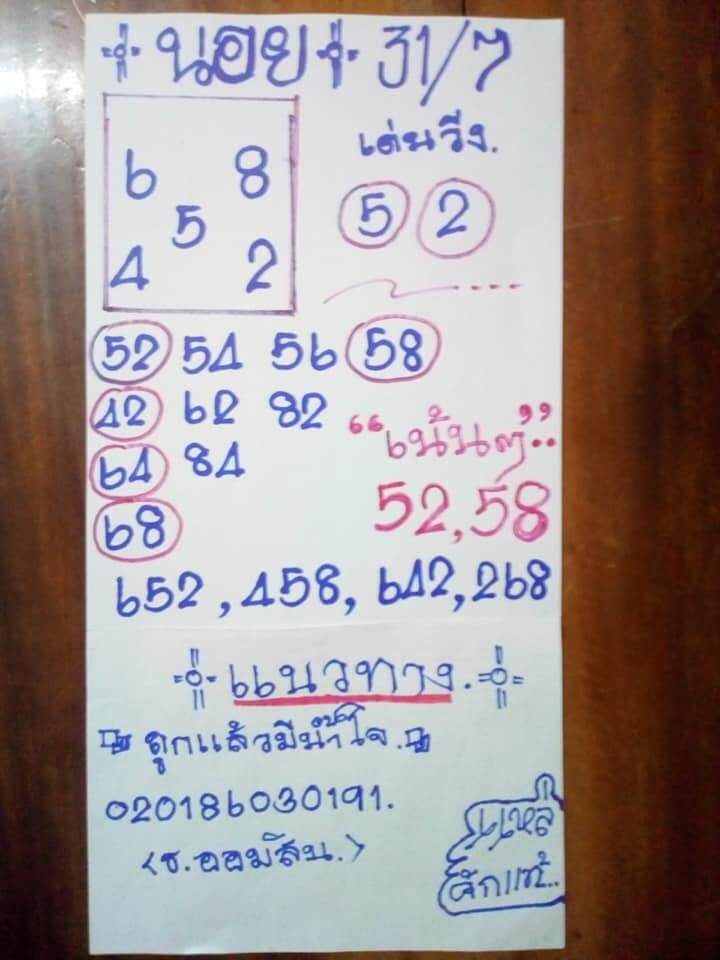 นอย 31/7
เด่นวิ่ง.
6 8
5
4 2
5 2
52 54 56 58
42 62 82
64 84
68
"เน้นๆ"..
52,58
652, 458, 642, 268
แนวทาง.
ถูกแล้วมีน้ำใจ.
020186030191.
<ธ.ออมสิน.>